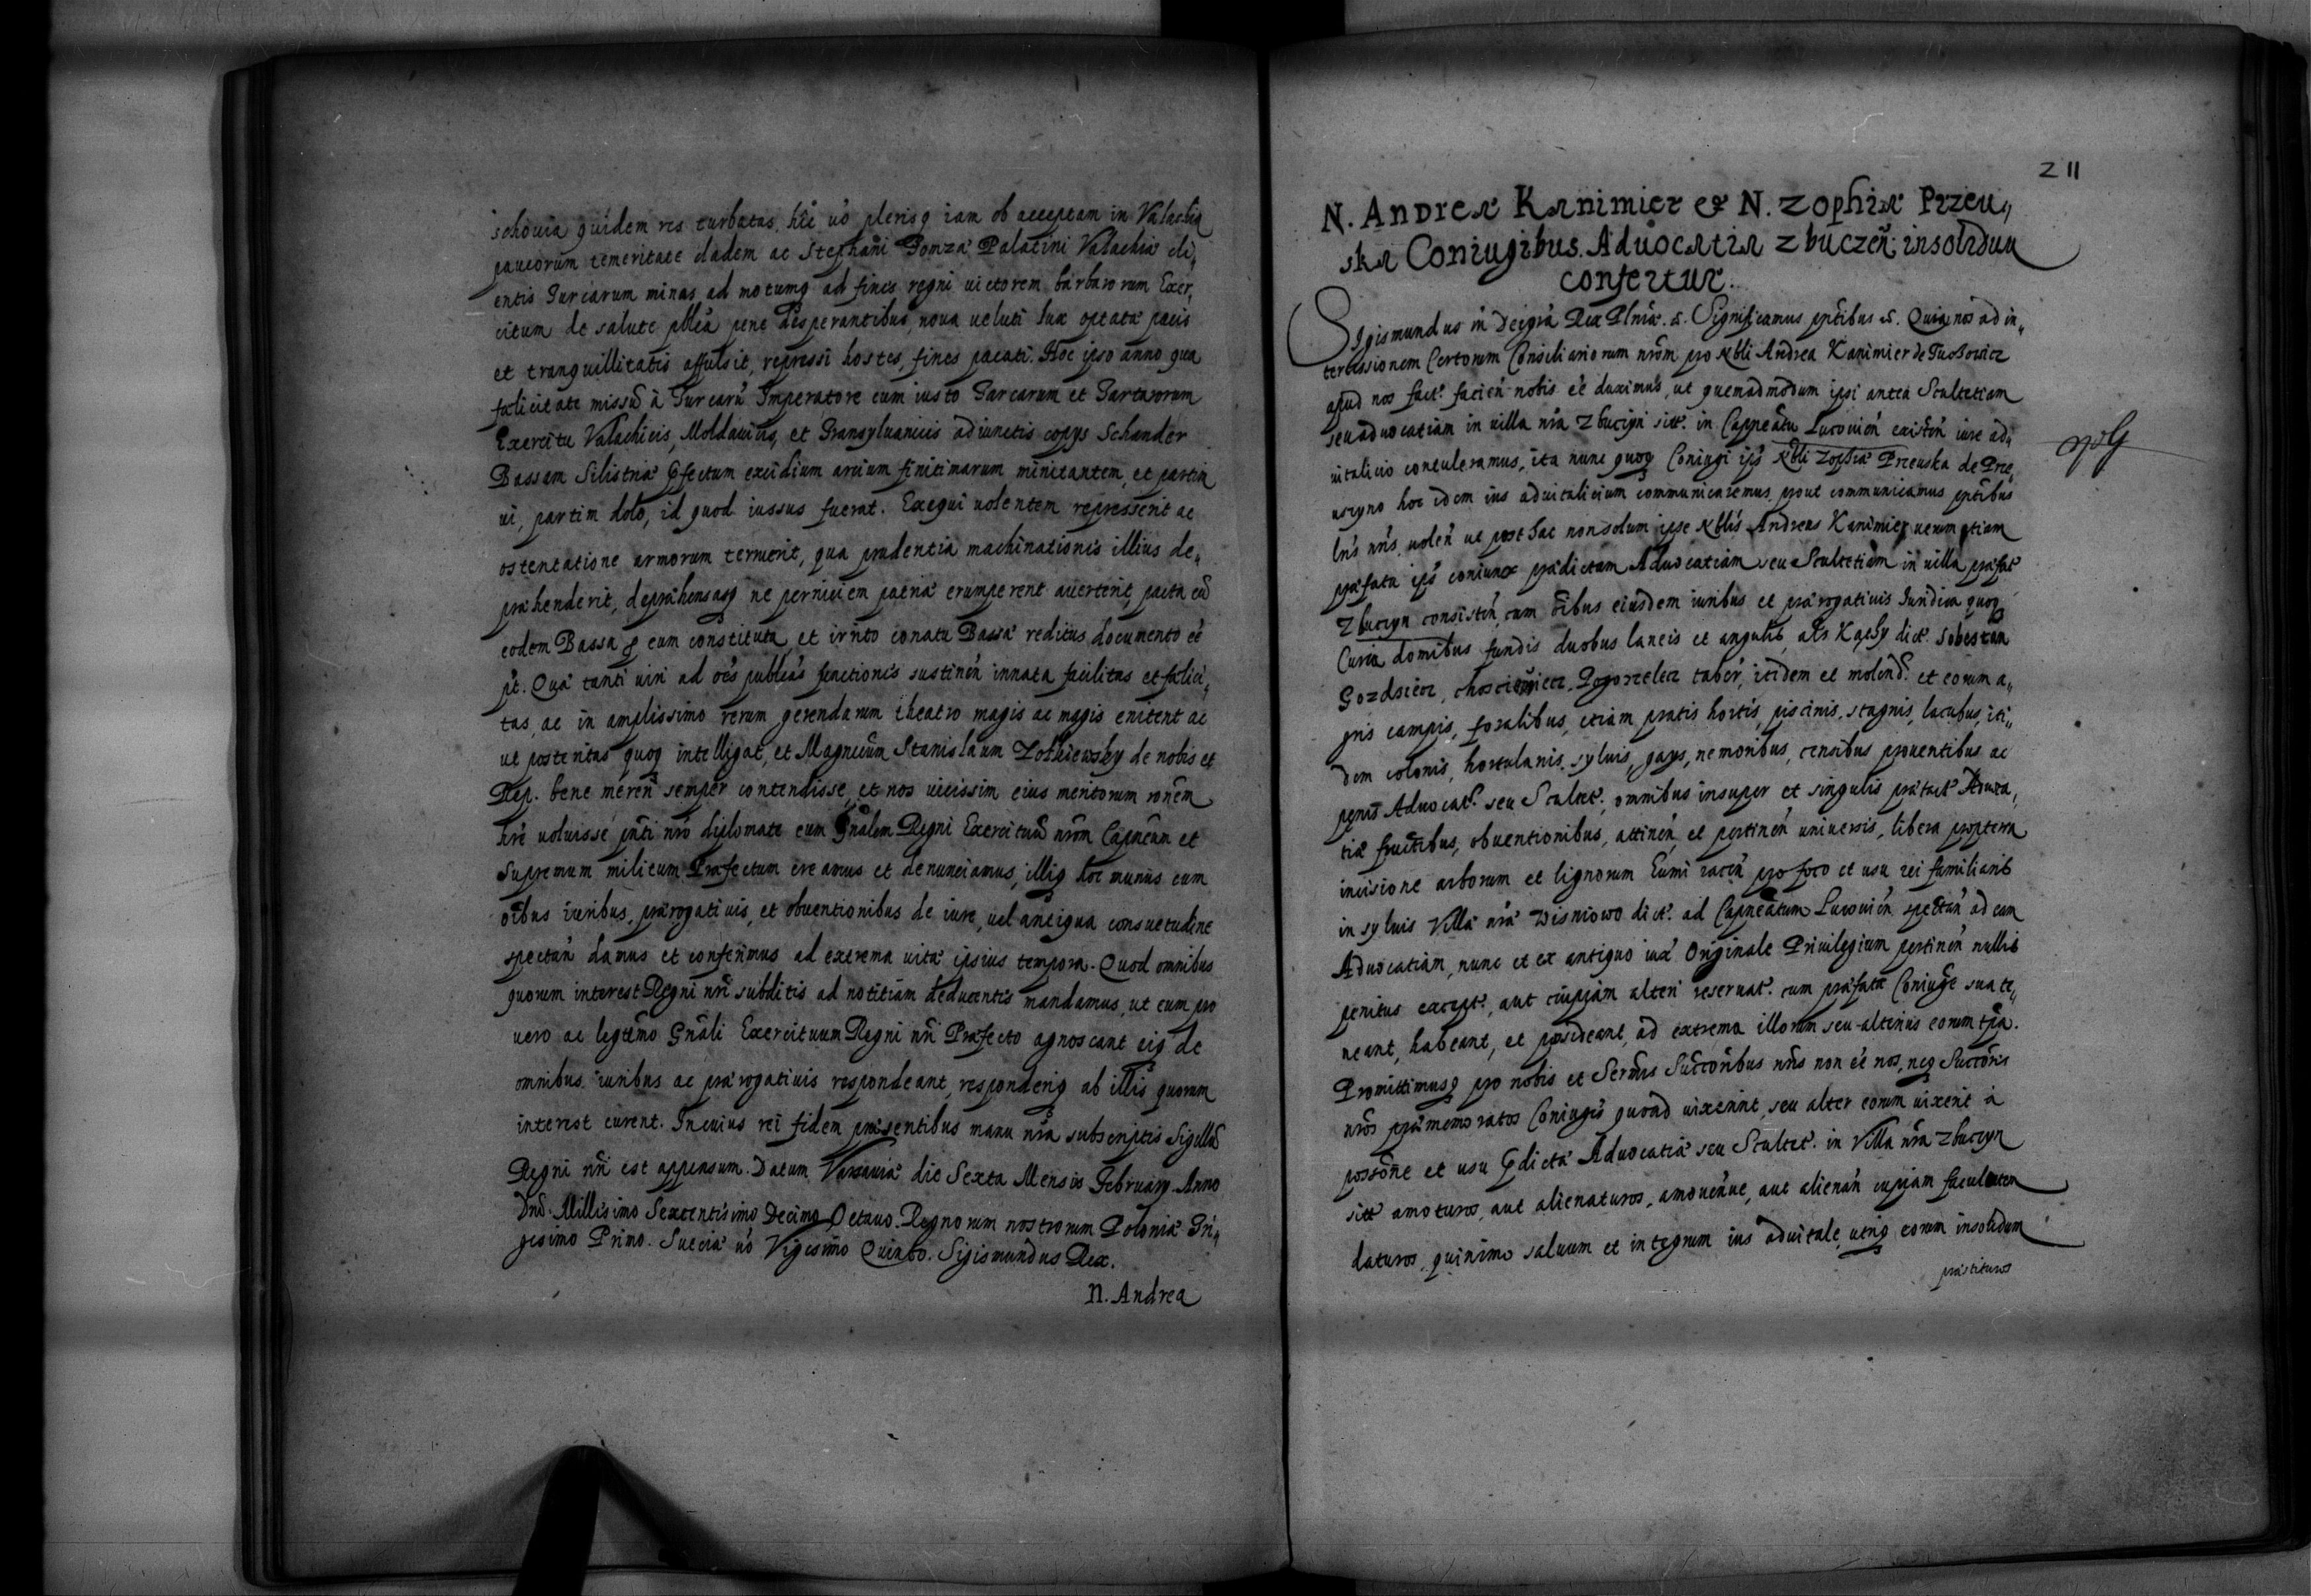 schouia quidem res turbatas, hic uo plerisq iam ob acceptam in Valachia
paucorum temeritate cladem ac Stephani Tomza Palatini Valachiæ cli„
entis Turcarum minas ad motumq ad fines regni uictorem barbarorum Exer„
citum de salute pblca pene desperantibus, noua ueluti lux optatæ pacis
et tranquillitatis affulsit, repressi hostes, fines pacati. Hoc ipso anno qua
fælicitate missũ à Turcarũ Imperatore cum iusto Turcarum et Tartarorum
Exercitu Valachicis, Moldauicis, et Transyluanicis adiunctis copys Schander
Bassam Silistriæ Pfectum excidium arcium finitimarum minitantem, et partim
ui, partim dolo, id quod iussus fuerat. Exequi uolentem represserit ac
ostentatione armorum terruerit, qua prudentia machinationis illius de„
præhenderit, depræhensasq ne perniciem patriæ erumperent auerterit, pacta cũ
eodem Bassa p eum constituta, et irrito conatu Bassæ reditus documento eẽ
pt. Quæ tanti uiri ad oẽs publcas functionis sustinẽn innata facilitas et fælici„
tas ac in amplissimo rerum gerendarum theatro magis ac magis enitent ac
ut posteritas quoq intelligat, et Magnicũm Stanislaum Zołkiewsky de nobis et
Rep. bene merẽn semper contendisse, et nos uicissim eius meritorum rõnem
hrẽ uoluisse pnti nrõ diplomate eum Gnãlem Regni Exercituũ nrõm Capneũm et
Supremum militum Præfectum creamus et denunciamus, illiq hoc munus cum
oĩbus iuribus, prærogatiuis, et obuentionibus de iure, uel antiqua consuetudine
spectãn damus et conferimus ad extrema uitæ ipsius tempora. Quod omnibus
quorum interest Regni nrĩ subditis ad notitiam deducentis mandamus, ut eum pro
uero ac legtĩmo Gnãli Exercituum Regni nrĩ Præfecto agnoscant eiq de
omnibus iuribus ac prærogatiuis respondeant, responderiq ab illis quorum
interest curent. In cuius rei fidem præsentibus manu nrã subscriptis Sigillũ
Regni nrĩ est appensum. Datum Varsauiæ die Sexta Mensis February Anno
Dnĩ. Millisimo Sexcentisimo Decimo Octauo. Regnorum nostrorum Poloniæ Tri„
gesimo Primo. Sueciæ uõ Vigesimo Quinto. Sigismundus Rex.
N. Andreæ
211
N. Andreæ Kanimier et N. Zophiæ Przeu„
ska Coniugibus. Aduocatia Zbuczeñ insolidum
confertur.
Sigismundus in Dei grã Rex Plniæ. &. Significamus pntĩbus &. Quia nos ad in„
tercessionem Certorum Consiliariorum nrõm pro Nbli Andrea Kanimier de
apud nos fact. faciẽn nobis eẽ duximus, ut quemadmodum ipsi antea Scultetiam
seu aduocatiam in uilla nrã Zbuczyn sitt. in Capneãtu Lucouiẽn existẽn iure ad„
uitalicio contuleramus, ita nunc quoq Coniugi ips Nbli Zophiæ Przeuska de Prze„
uszyno hoc idem ius aduitalicium communicaremus prout communicamus pntĩbus
lrĩs nrĩs uolẽn ut post hac non solum ipse Nblis Andreas Kanimier, uerum etiam
præfata ips coniunx prædictam Aduocatiam seu Scultetiam in uilla præfat
Zbuczyn consistẽn, cum oĩbus eiusdem iuribus et prærogatiuis Iuridica quoq
Curia domibus fundis duobus laneis et angulis, als Kąthy dict. Sobestan
Gozdziecz, choscieniecz, Pogorzelecz tabẽr, itidem et molend. et eorum a„
gris campis, foralibus, etiam pratis hortis, piscinis, stagnis, lacubus, iti„
dem colonis, hortulanis, syluis, gays, nemoribus, censibus prouentibus ac
penis Aduocat. seu Scultet. omnibus insuper et singulis prætact Aduoca„
tiæ fructibus, obuentionibus, attinẽn, et pertinẽn uniuersis, libera propterea
incisione arborum et lignorum pro foco et usu rei familiaris
in syluis Villæ nræ Wisniowo dict. ad Capneãtum Lucouiẽn spectãn ad eam
Aduocatiam, nunc et ex antiquo iux Originale Priuilegium pertinẽn nullis
penitus except. aut cuipiam alteri reseruat. cum præfata Coniuge sua te„
neant, habeant, et possideant, ad extrema illorum seu alterius eorum tpã.
Promittimusq pro nobis et Sermis Succoribus nrĩs non eẽ nos, neq Succoris
nrõs præmemoratos Coniugis quoad uixerint, seu alter eorum uixerit à
possõne et usu Pdictæ Aduocatiæ seu Scultet. in Villa nrã Zbuczyn
sitt amoturos, aut alienaturos, amouẽnue, aut alienãn cupiam facultatem
daturos, quinimo saluum et integrum ius aduitale utriq eorum insolidum
præstituros